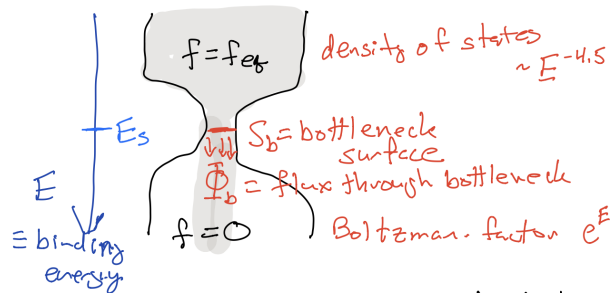 f = f_eq
density of states
~ E^-4.5
E_s
S_b = bottleneck
surface
E
Φ_b = flux through bottleneck
≡ binding
energy
f = 0
Boltzman. factor e^E